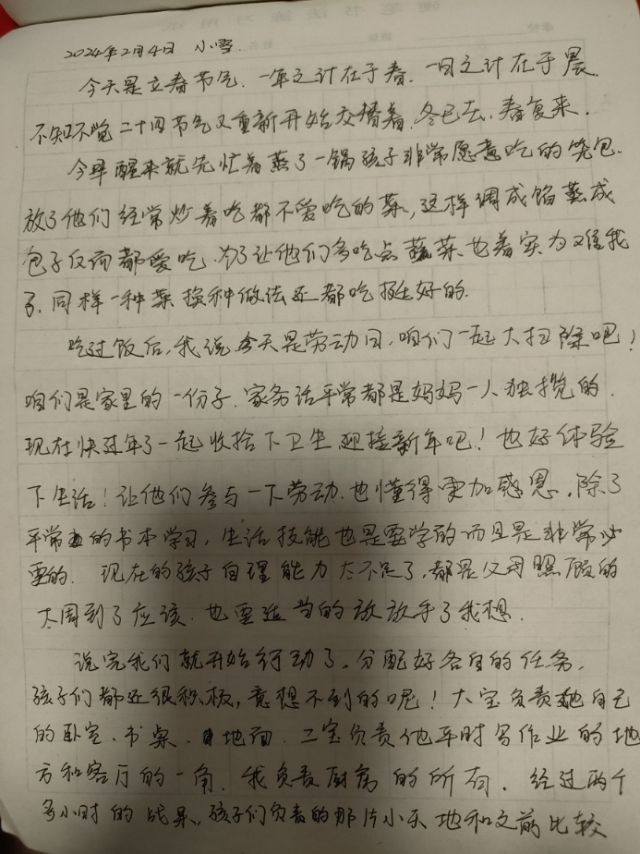 2024年2月4日 小雪.
今天是立春节气.一年之计在于春.一日之计在于晨.
不知不觉二十四节气又重新开始交替着.冬已去.春复来.
今早醒来就先忙着蒸了一锅孩子非常愿意吃的包.
放了他们经常炒着吃都不爱吃的菜,这样调成馅蒸成
包子反而都爱吃.为了让他们多吃点蔬菜也着实为难我
了.同样一种菜换种做法还都吃挺好的.
吃过饭后,我说今天是劳动日,咱们一起大扫除吧!
咱们是家里的一份子.家务活平常都是妈妈一人独揽的.
现在快过年了一起收拾下卫生迎接新年吧!也好体验
下生活!让他们参与一下劳动.也懂得更加感恩.除了
平常的书本学习,生活技能也是要学的而且是非常必
要的.现在的孩子自理能力太不足了,都是父母照顾的
太周到了应该.也要适当的放放手了我想.
说完我们就开始行动了.分配好各自的任务,
孩子们都还很积极,意想不到的呢!大宝负责她自己
的卧室.书桌.地面.二宝负责他平时写作业的地
方和客厅的一角.我负责厨房的所有.经过两个
多小时的战果,孩子们负责的那片小天地和之前比较